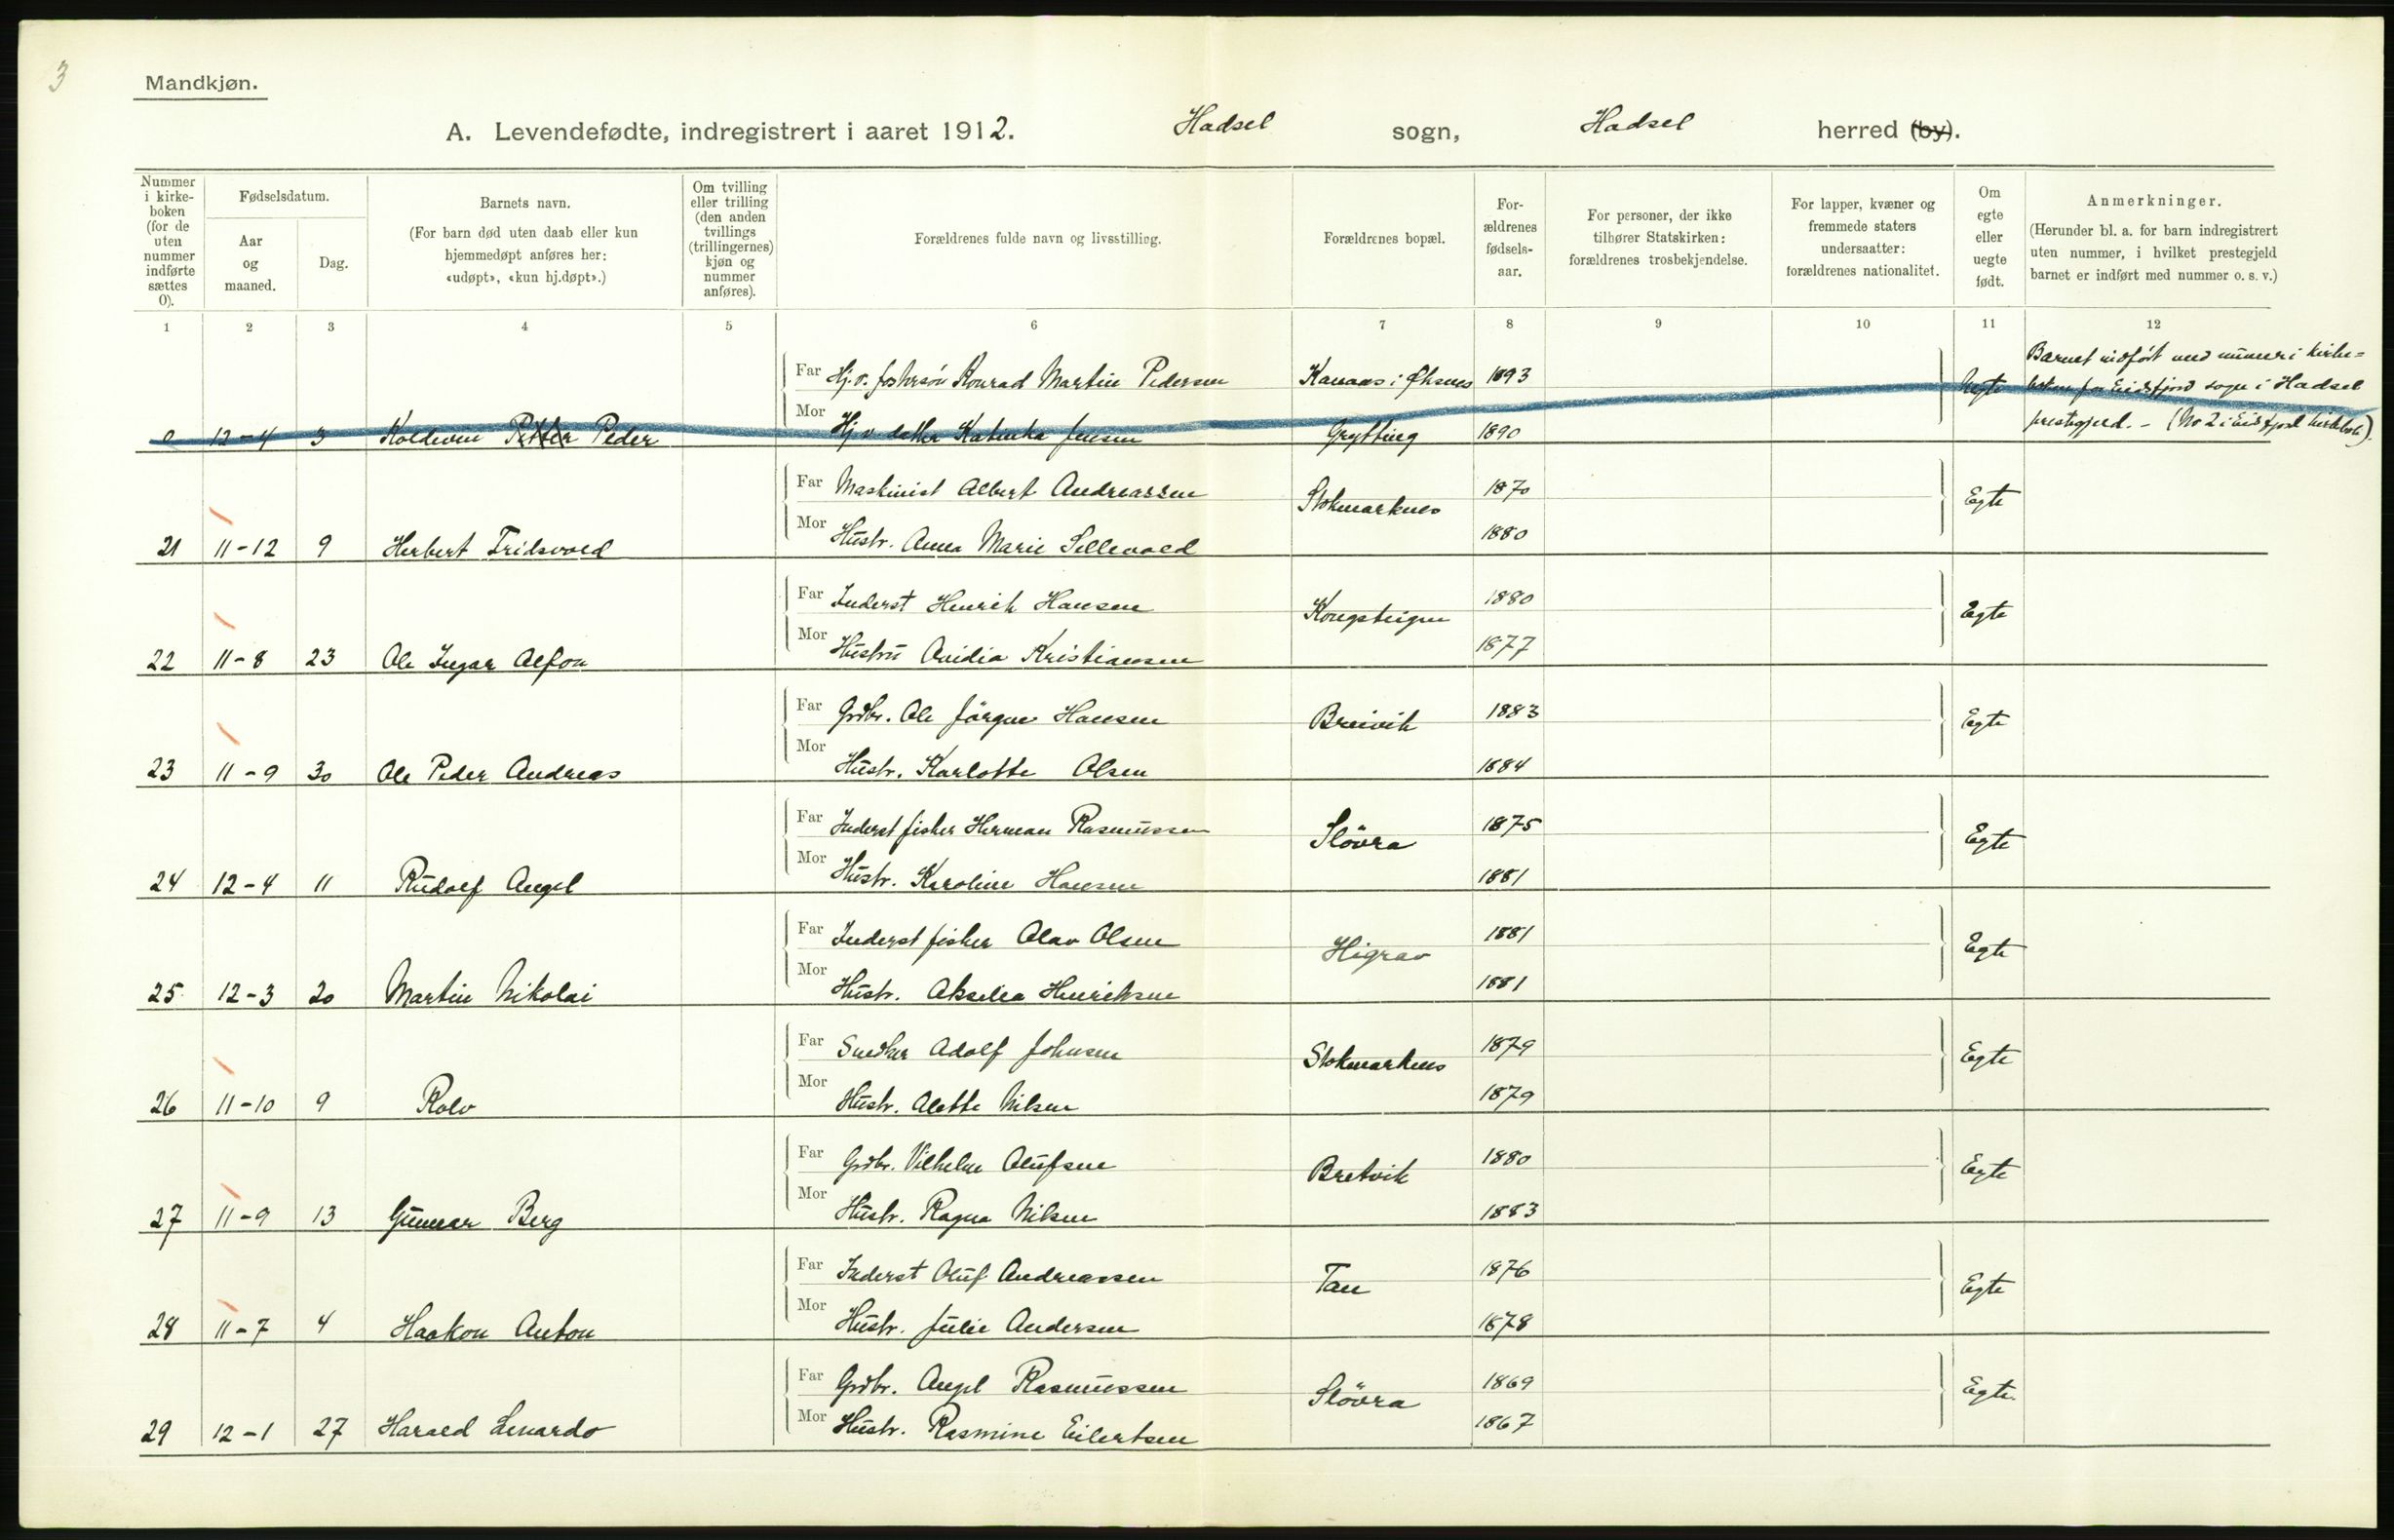 3
Mandkjøn.
A. Levendefødte, indregistrert i aaret 1912. Hadsel sogn, Hadsel herred (by).
Nummer i kirke-boken (for de uten nummer indførte sættes 0).
Fødselsdatum.
Aar og maaned.
Dag.
Barnets navn.
(For barn død uten daab eller kun hjemmedøpt anføres her: «udøpt», «kun hj.døpt».)
Om tvilling eller trilling (den anden tvillings (trillingernes) kjøn og nummer anføres).
Forældrenes fulde navn og livsstilling.
Forældrenes bopæl.
For-ældrenes fødsels-aar.
For personer, der ikke tilhører Statskirken: forældrenes trosbekjendelse.
For lapper, kvæner og fremmede staters undersaatter: forældrenes nationalitet.
Om egte eller uegte født.
Anmerkninger.
(Herunder bl. a. for barn indregistrert uten nummer, i hvilket prestegjeld barnet er indført med nummer o. s. v.)
1 2 3 4 5 6 7 8 9 10 11 12
Far Hj.v. fostersøn Konrad Martin Pedersen Kanaas i Øksnes 1893
Barnet indført med numer i kirke=
Uegte boken for Eidsfjord sogn i Hadsel
prestegjeld. - (No 2 i Eidsfjord kirkebok).
0 12-4 3 Koldevin Petter Peder Mor Hj.v. datter Katinka Jensen Grytting 1890
Far Maskinist Albert Andreassen Stokmarknes 1870 Egte
21 11-12 9 Herbert Fridsvold Mor Hustr. Anna Marie Sellevold 1880
Far Inderst Henrik Hansen Kongsteigen 1880 Egte
22 11-8 23 Ole Ingar Alfon Mor Hustru Ovidia Kristiansen 1877
Far Grdbr. Ole Jörgen Hansen Breivik 1883 Egte
23 11-9 30 Ole Peder Andreas Mor Hustr. Karlotte Olsen 1884
Far Inderst fisker Herman Rasmussen Slövra 1875 Egte
24 12-4 11 Rudolf Angel Mor Hustr. Karoline Hansen 1881
Far Inderst fisker Olav Olsen Higrav 1881 Egte
25 12-3 20 Martin Nikolai Mor Hustr. Akselia Henriksen 1881
Far Snedker Adolf Johnsen Stokmarknes 1879 Egte
26 11-10 9 Rolv Mor Hustr. Alette Nilsen 1879
Far Grdbr. Vilhelm Olufsen Bretvik 1880 Egte
27 11-9 13 Gunnar Berg Mor Hustr. Ragna Nilsen 1883
Far Inderst Oluf Andreassen Tan 1876 Egte
28 11-7 4 Haakon Anton Mor Hustr. Julie Andersen 1878
Far Grdbr. Angel Rasmussen Slövra 1869 Egte
29 12-1 27 Harald Lenardo Mor Hustr. Rasmine Eilertsen 1867